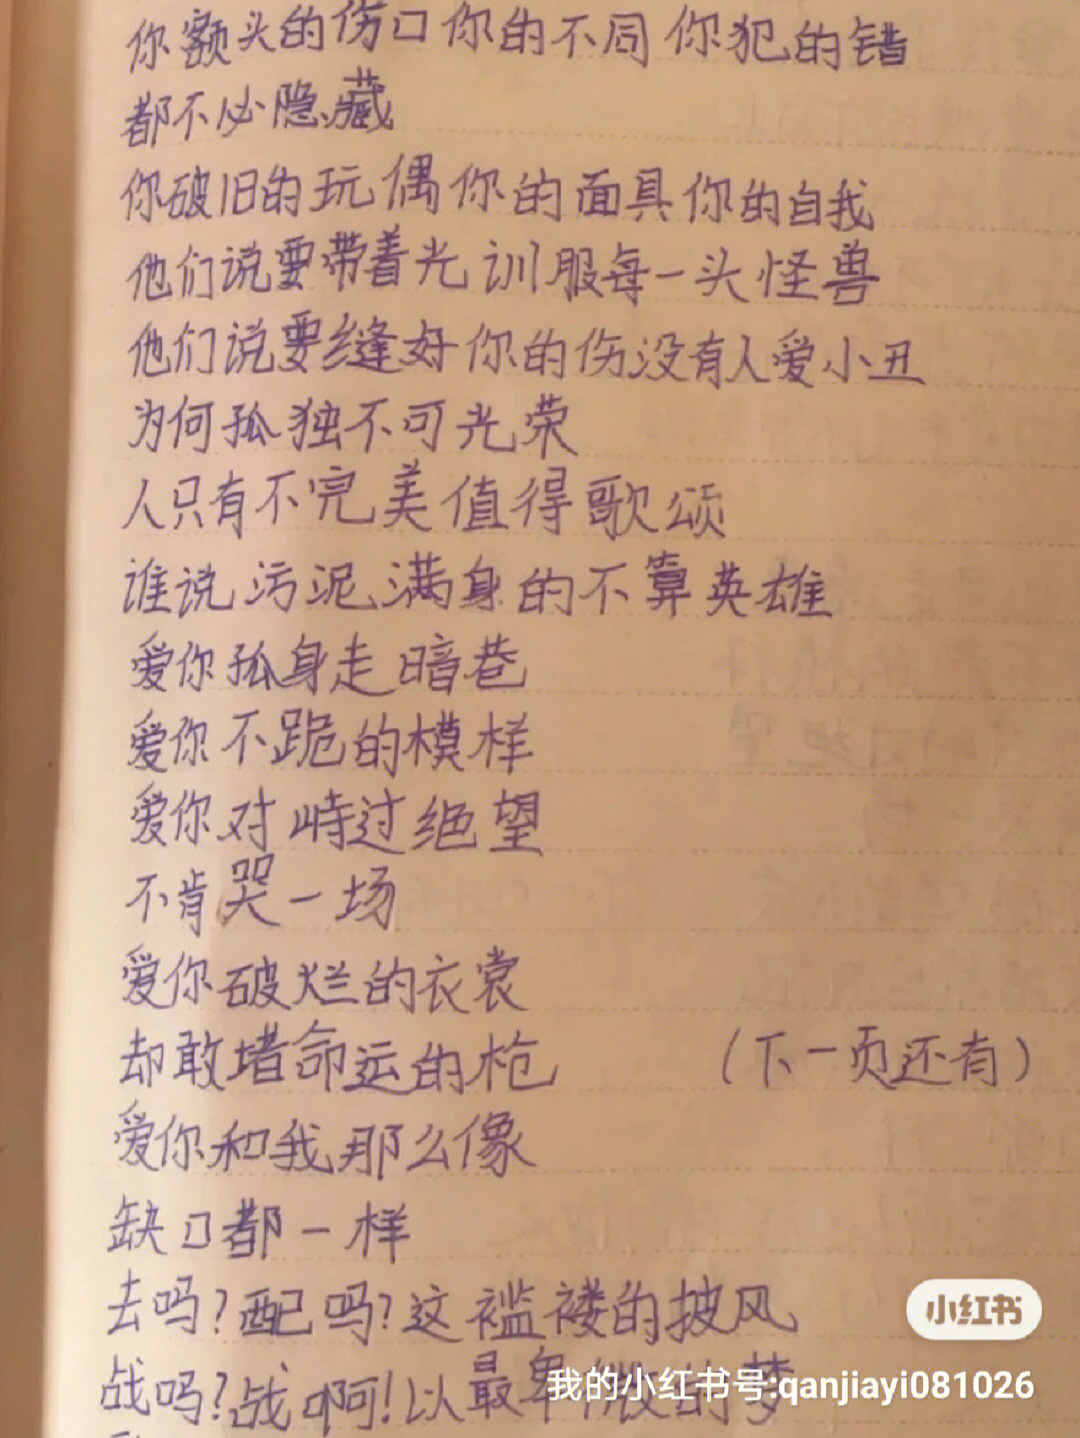 你额头的伤口你的不同你犯的错
都不必隐藏
你破旧的玩偶你的面具你的自我
他们说要带着光训服每一头怪兽
他们说要缝好你的伤没有人爱小丑
为何孤独不可光荣
人只有不完美值得歌颂
谁说污泥满身的不算英雄
爱你孤身走暗巷
爱你不跪的模样
爱你对峙过绝望
不肯哭一场
爱你破烂的衣裳
却敢堵命运的枪
(下一页还有)
爱你和我那么像
缺口都一样
去吗?配吗?这褴褛的披风
战吗?战啊!以最卑微的梦
小红书
我的小红书号:qanjiayi081026